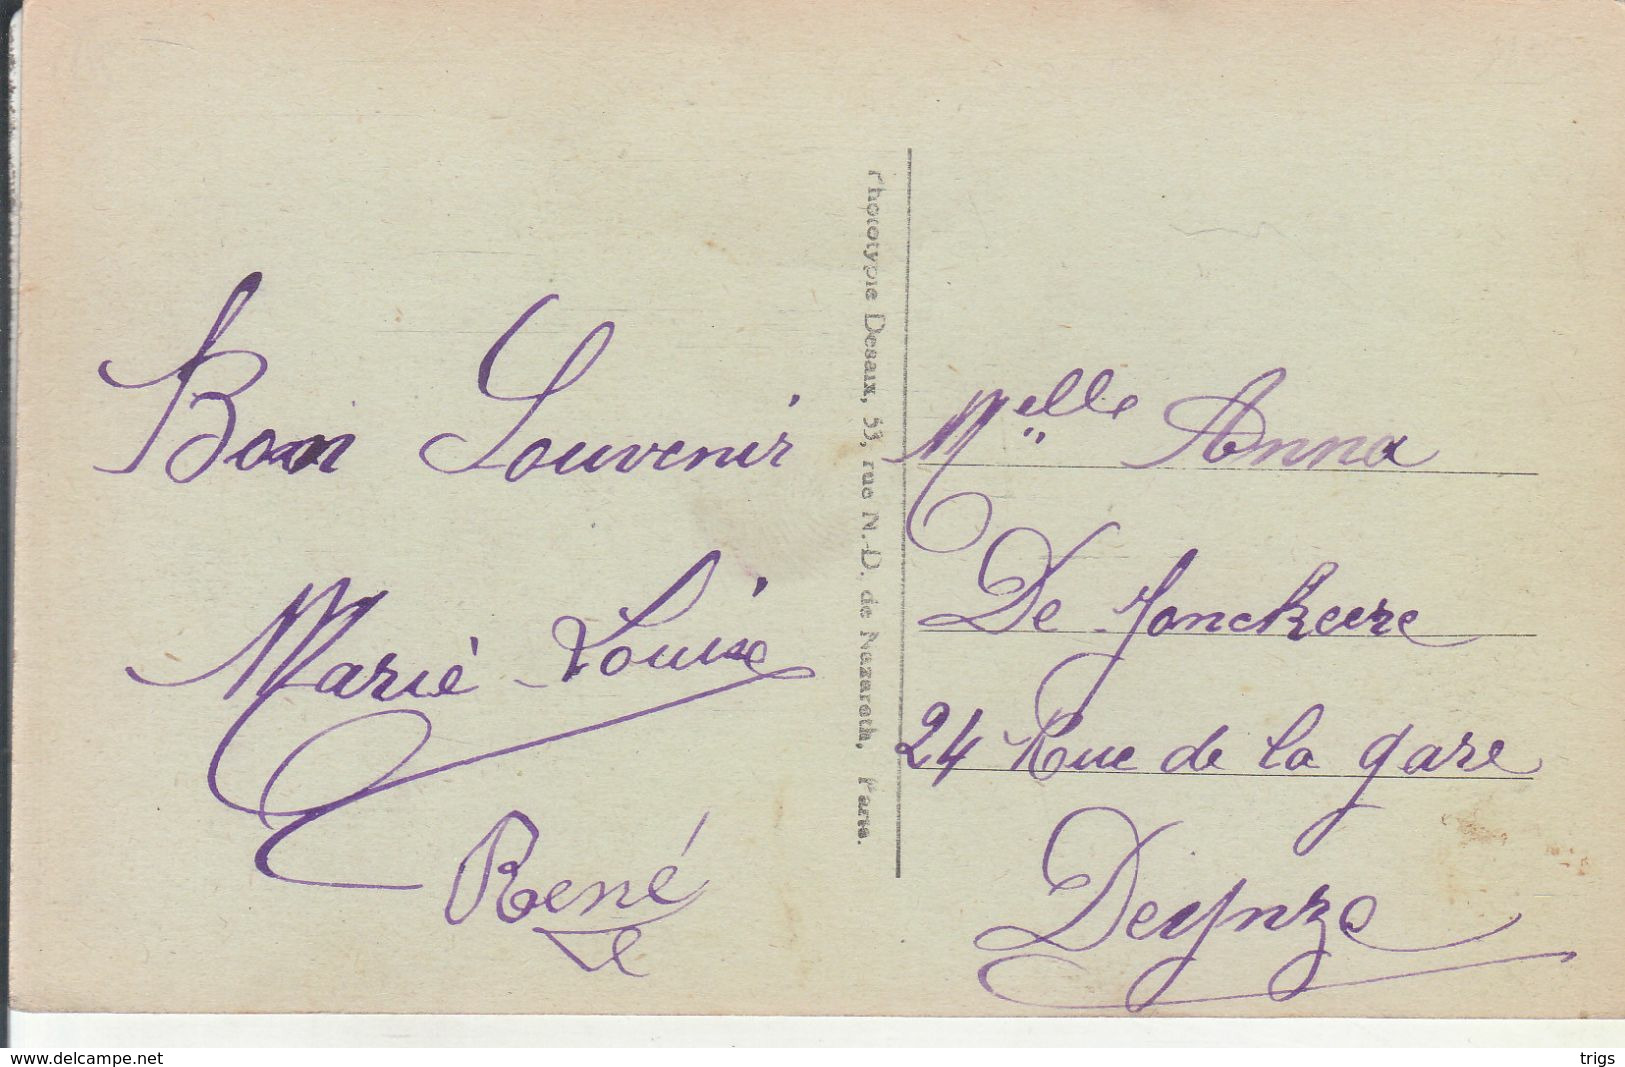 Bon Souvenir
Marie-Louise
René
Phototypie Desaix, 53, rue N.-D. de Nazareth, Paris.
Melle Anna
De Jonckeere
24 Rue de la gare
Deijnze
www.delcampe.net
trigs